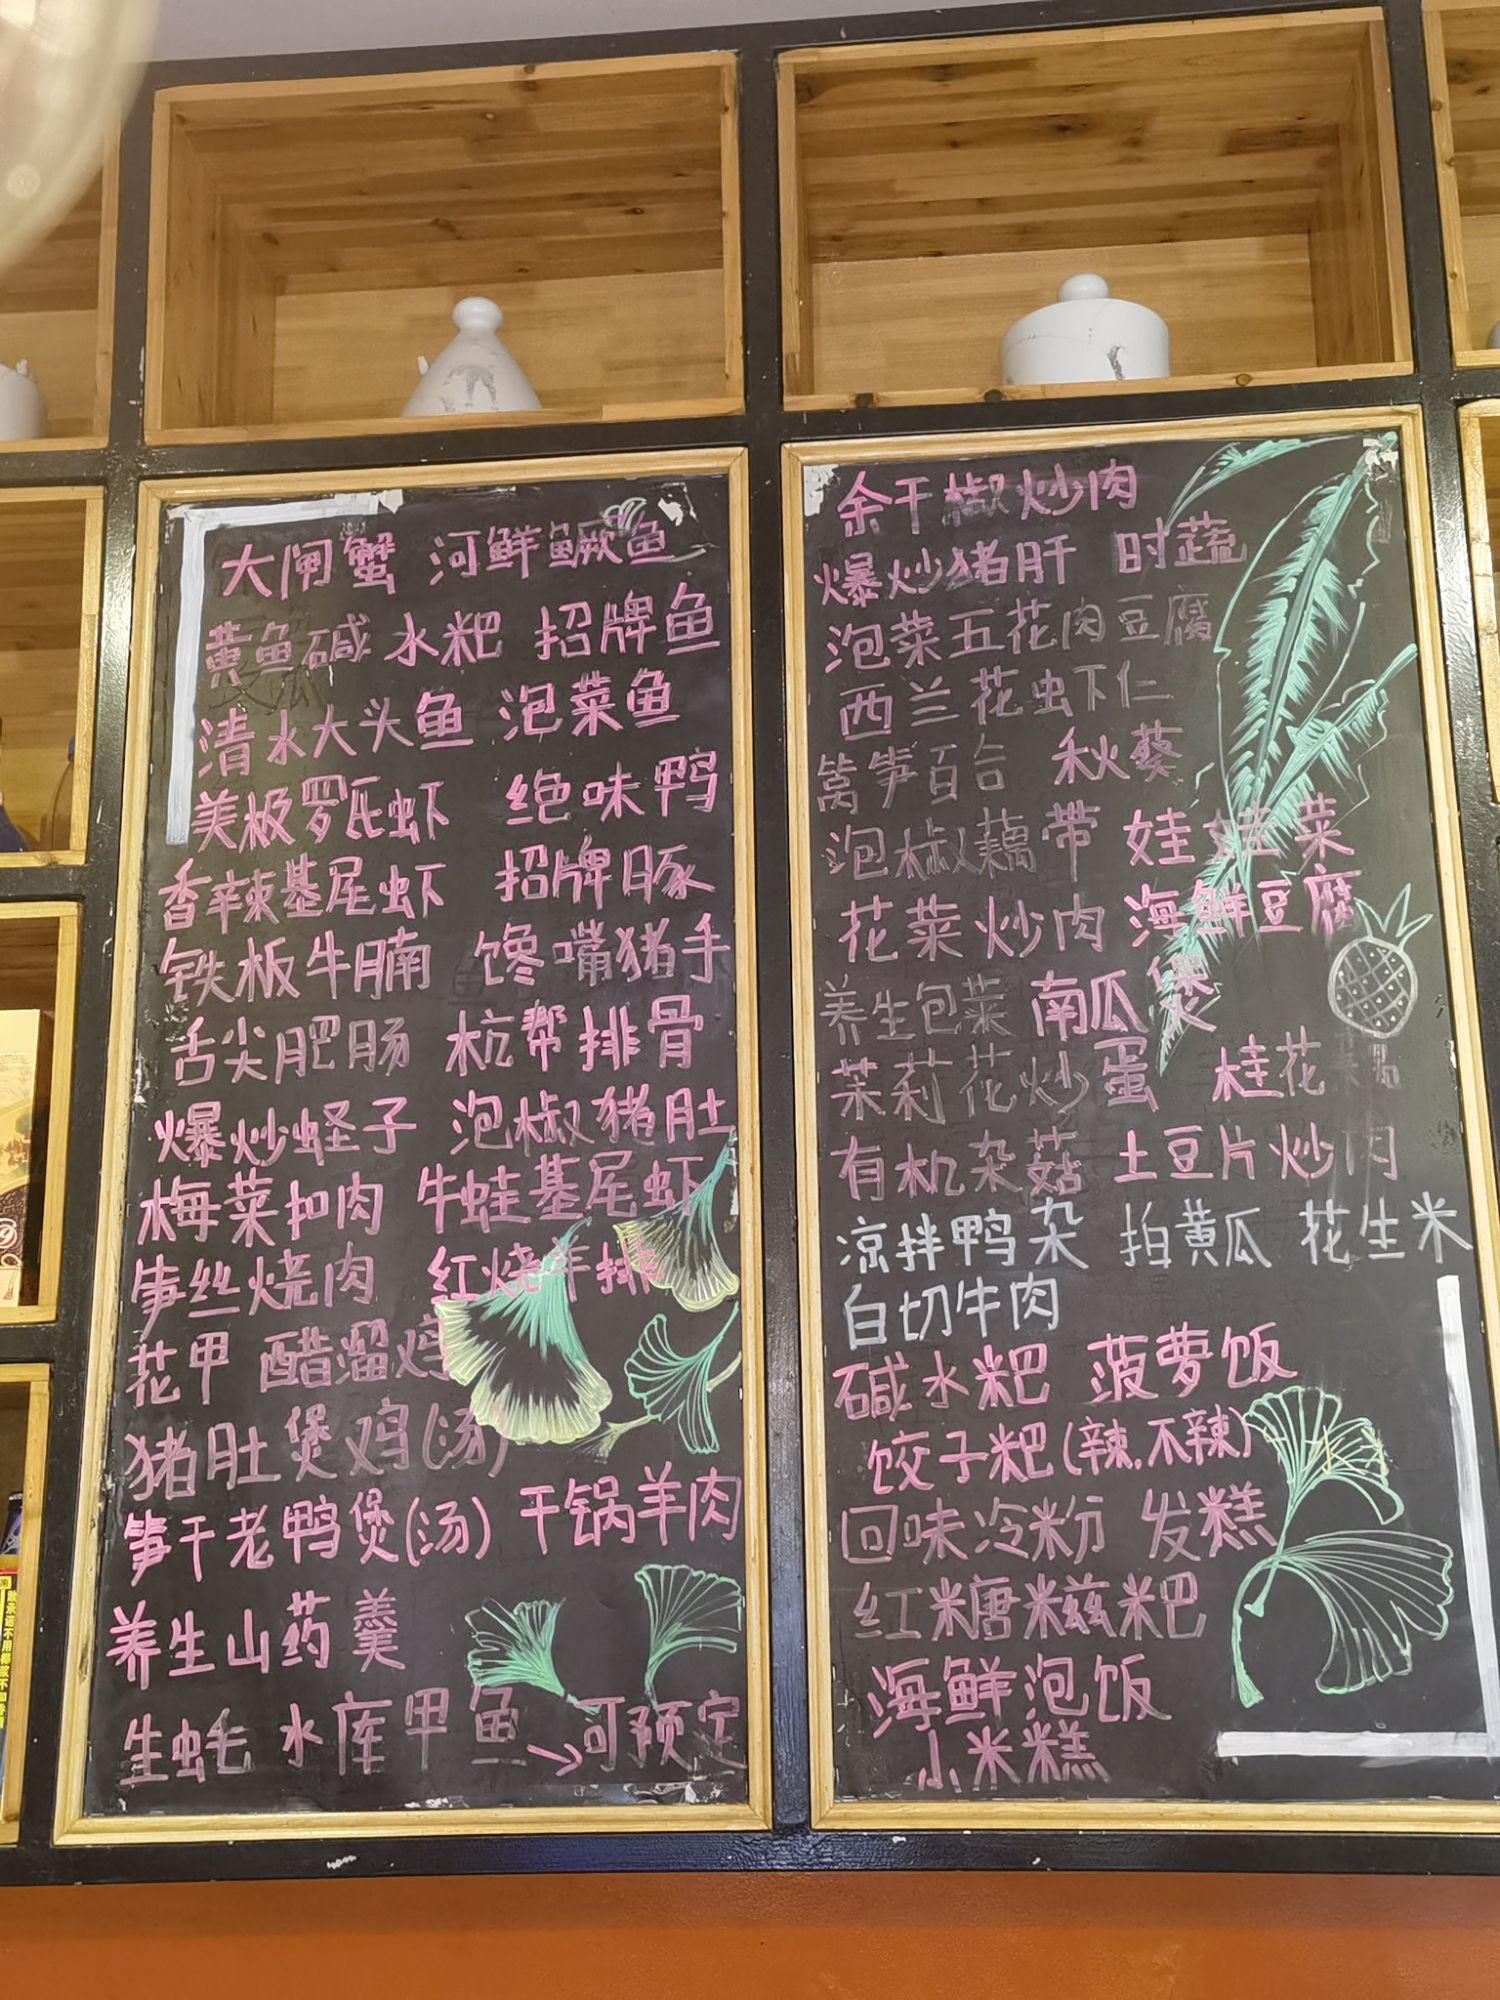 大闸蟹 河鲜鳜鱼
黄鱼碱水粑 招牌鱼
清水大头鱼 泡菜鱼
美极罗氏虾 绝味鸭
香辣基尾虾 招牌豚
铁板牛腩 馋嘴猪手
舌尖肥肠 杭帮排骨
爆炒蛏子 泡椒猪肚
梅菜扣肉 牛蛙基尾虾
笋丝烧肉 红烧羊排
花甲 醋溜鸡
猪肚煲鸡(汤)
笋干老鸭煲(汤) 干锅羊肉
养生山药羹
生蚝 水库甲鱼→可预定
余干椒炒肉
爆炒猪肝 时蔬
泡菜五花肉豆腐
西兰花虫下仁
莴笋百合 秋葵
泡椒藕带 娃娃菜
花菜炒肉 海鲜豆腐
养生包菜 南瓜煲
茉莉花炒蛋 桂花
有机杂菇 土豆片炒肉
凉拌鸭杂 拍黄瓜 花生米
白切牛肉
碱水粑 菠萝饭
饺子粑(辣.不辣)
回味冷粉 发糕
红糖糍粑
海鲜泡饭
小米糕